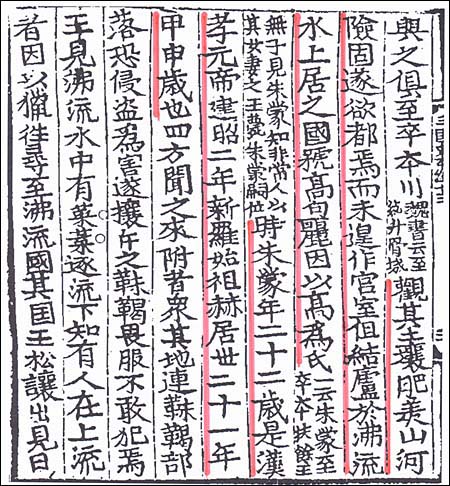 與之俱至卒本川魏書云至紇升骨城觀其土壤肥美山河
險固遂欲都焉而未遑作宮室但結廬於沸流
水上居之國號高句麗因以高爲氏一云朱蒙至卒本扶餘王
無子見朱蒙知非常人以其女妻之王薨朱蒙嗣位時朱蒙年二十二歲是漢
孝元帝建昭二年新羅始祖赫居世二十一年
甲申歲也四方聞之來附者衆其地連靺鞨部
落恐侵盜爲害遂攘斥之靺鞨畏服不敢犯焉
王見沸流水中有菜葉逐流下知有人在上流
者因以獵往尋至沸流國其国王松讓出見曰